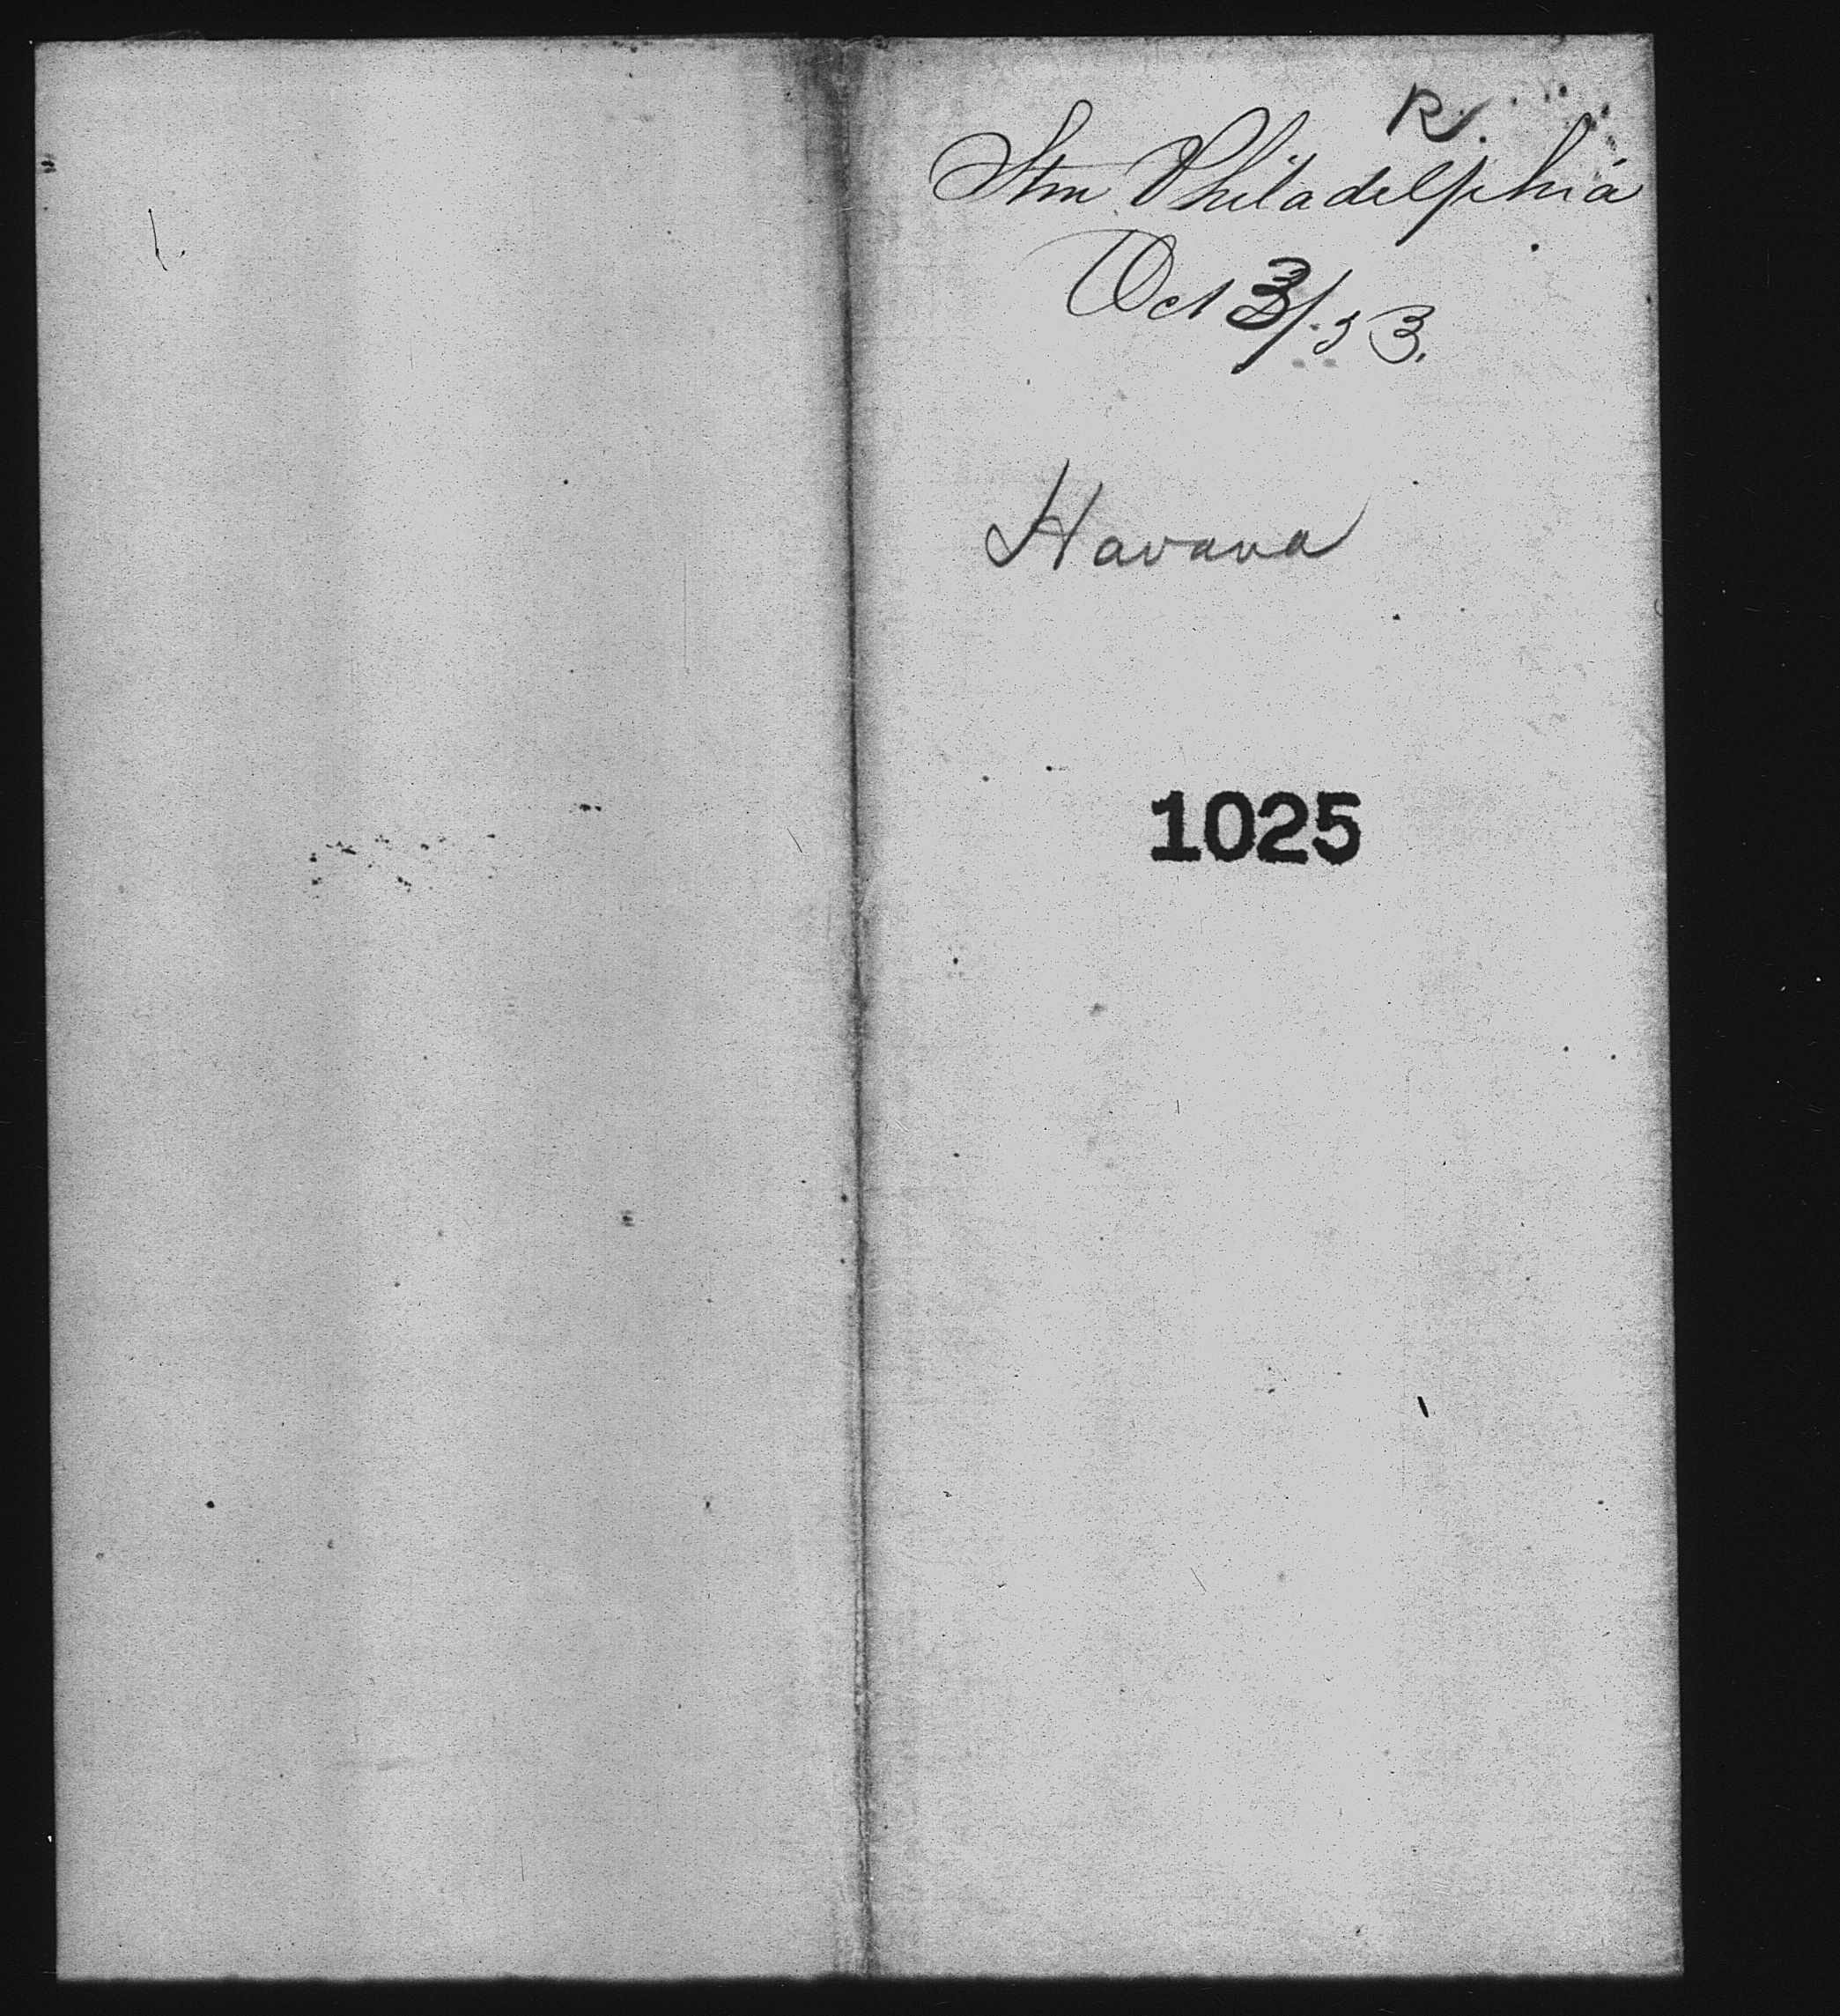 R.
Stm Philadelphia
Oct 3/53.
Havana
1025